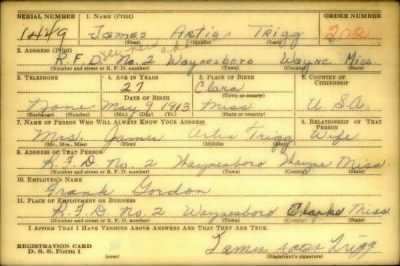 SERIAL NUMBER 1. NAME (Print) ORDER NUMBER
1449 James Artis Trigg 202
(First) (Middle) (Last)
2. ADDRESS (Print)
R.F.D. No. 2 Waynesboro Wayne Miss.
(Number and street or R. F. D. number) (Town) (County) (State)
3. TELEPHONE 4. AGE IN YEARS 5. PLACE OF BIRTH 6. COUNTRY OF CITIZENSHIP
27 Clara
DATE OF BIRTH (Town or county)
None May 9 1913 Miss U.S.A.
(Exchange) (Number) (Mo.) (Day) (Yr.) (State or country)
7. NAME OF PERSON WHO WILL ALWAYS KNOW YOUR ADDRESS 8. RELATIONSHIP OF THAT PERSON
Mrs. James Artis Trigg Wife
(Mr., Mrs., Miss) (First) (Middle) (Last)
9. ADDRESS OF THAT PERSON
R.F.D No. 2 Waynesboro Wayne Miss
(Number and street or R. F. D. number) (Town) (County) (State)
10. EMPLOYER'S NAME
Frank Gordon
11. PLACE OF EMPLOYMENT OR BUSINESS
R.F.D No. 2 Waynesboro Clarke Miss
(Number and street or R. F. D. number) (Town) (County) (State)
I AFFIRM THAT I HAVE VERIFIED ABOVE ANSWERS AND THAT THEY ARE TRUE.
REGISTRATION CARD
D. S. S. Form 1 Trigg